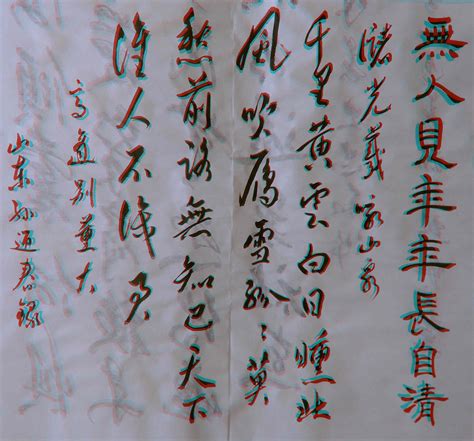 無人見年年長自清
儲光羲咏山泉
千里黃雲白日曛北
風吹鴈雪紛々莫
愁前路無知己天下
誰人不識君
高適别董大
山東孙